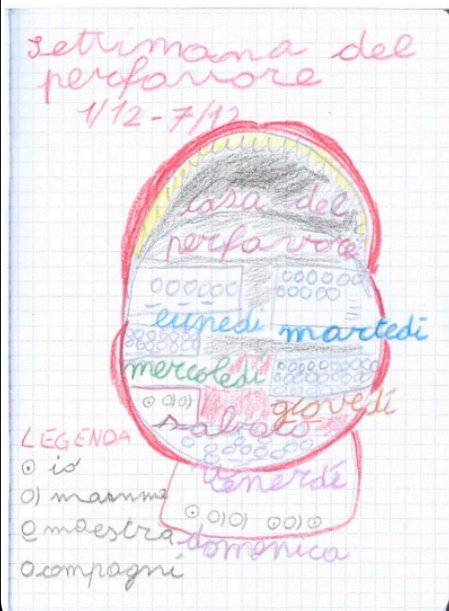 settimana del
perfavore
1/12-7/12
casa del
perfavore
lunedì
martedì
mercoledì
giovedì
sabato
venerdì
domenica
LEGENDA
io
mamma
maestra
compagni